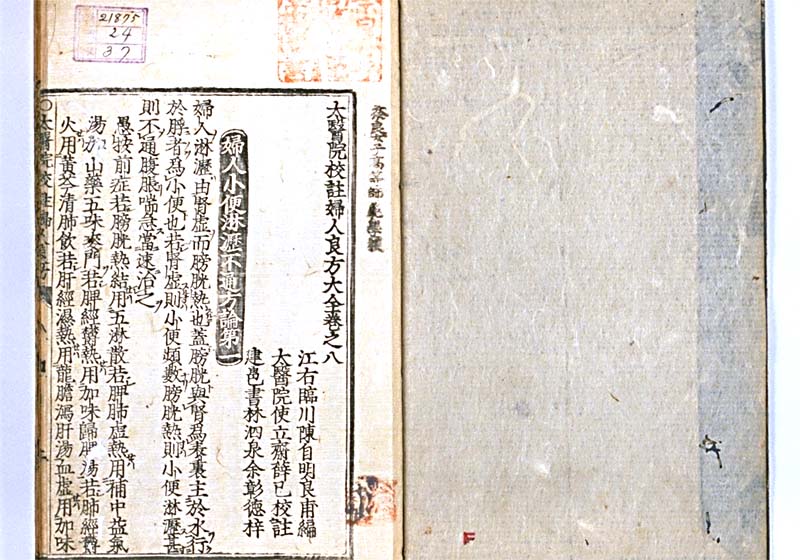 21875
24
37
太醫院校註婦人良方大全卷之八
江右臨川陳自明良甫編
太醫院使立齋薛己校註
建邑書林泗泉余彰德梓
婦人小便淋瀝不通方論第一
婦人淋瀝由腎虛而膀胱熱也蓋膀胱與腎爲表裏主於水行
於脬者爲小便也若腎虛則小便頻數膀胱熱則小便淋瀝甚
則不通腹脹喘急當速治之
愚按前症若膀胱熱結用五淋散若脾肺虛熱用補中益氣
湯加山藥五味麥門若脾經鬱熱用加味歸脾湯若肺經
火用黃芩清肺飲若肝經濕熱用龍膽瀉肝湯血虛用加味
太醫院校註婦人良方